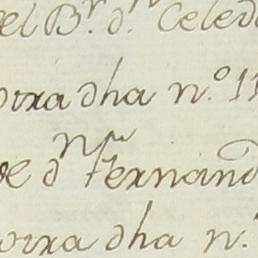 el B.r d.n Celed
orra dha n.o 11
de d.n Fernand
orra dha n.